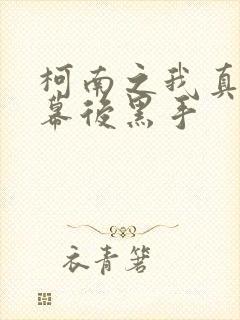 柯南之我真
幕後黑手
衣青箬